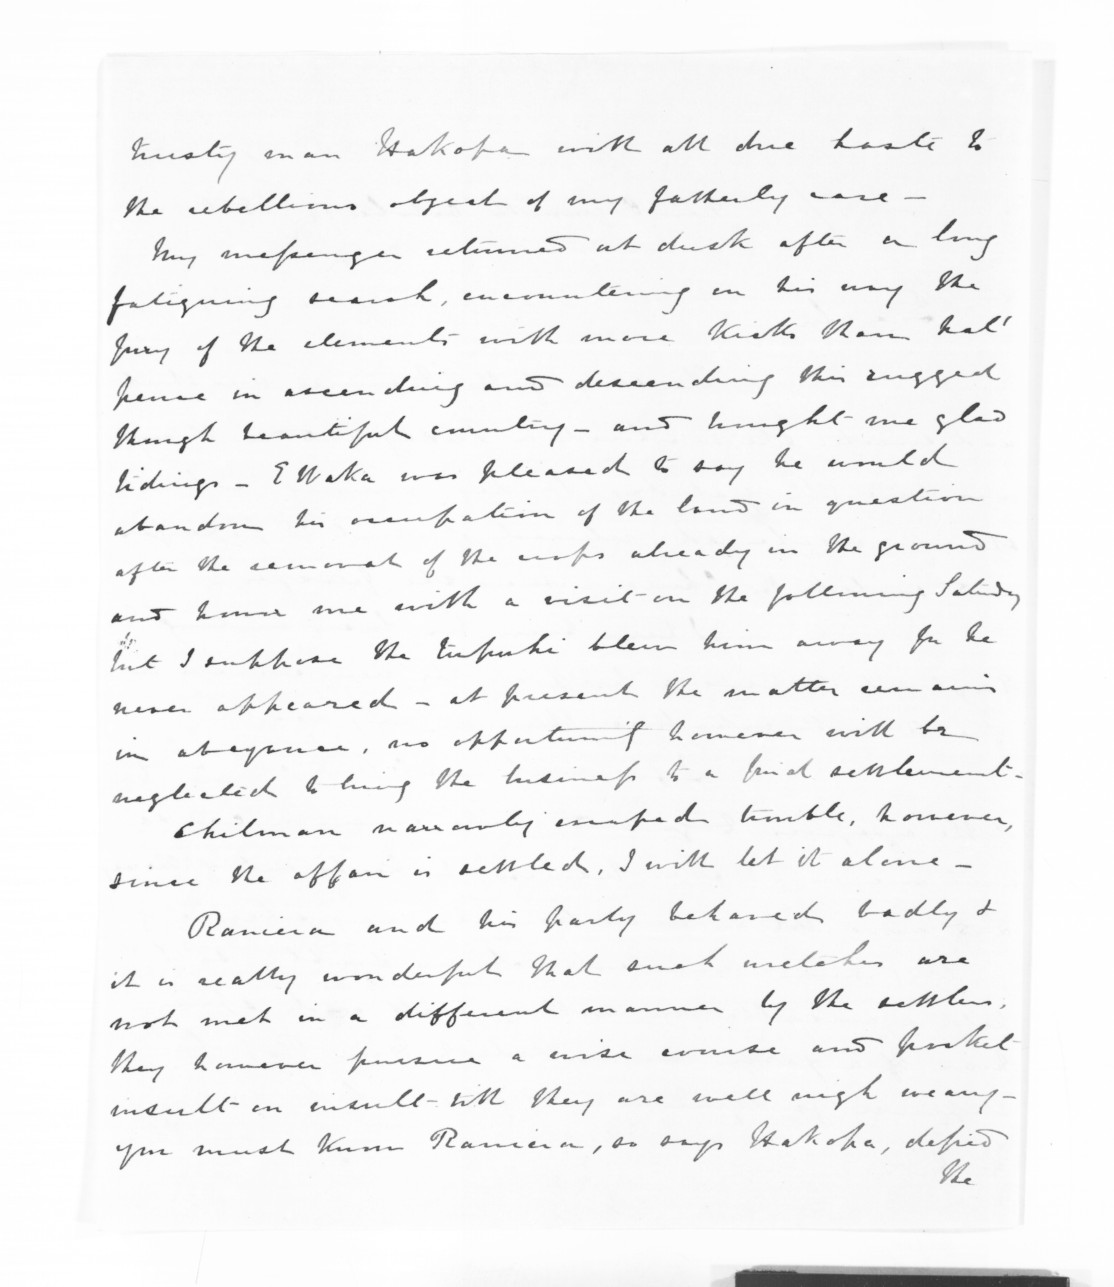 trusty man Hakopa with all due haste to
the rebellious object of my fatherly care -
My messenger returned at dusk after a long
fatiguing search, encountering on his way the
fury of the elements with more kicks than hal'
pence in ascending and descending this rugged
though beautiful country - and brought me glad
tidings - E Waka was pleased to say he would
abandon his occupation of the land in question
after the removal of the crops already in the ground
and honor me with a visit on the following Saturday
but I suppose the tupuhi blew him away for he
never appeared - at present the matter remains
in abeyance, no opportunity however will be
neglected to bring the business to a final settlement -
Chilman narrowly escaped trouble, however,
since the affair is settled, I will let it alone -
Raniera and his party behaved badly &
it is really wonderful that such wretches are
not met in a different manner by the settlers,
they however pursue a wise course and pocket
insult on insult till they are well nigh weary -
you must know Raniera, so says Hakopa, defied
the